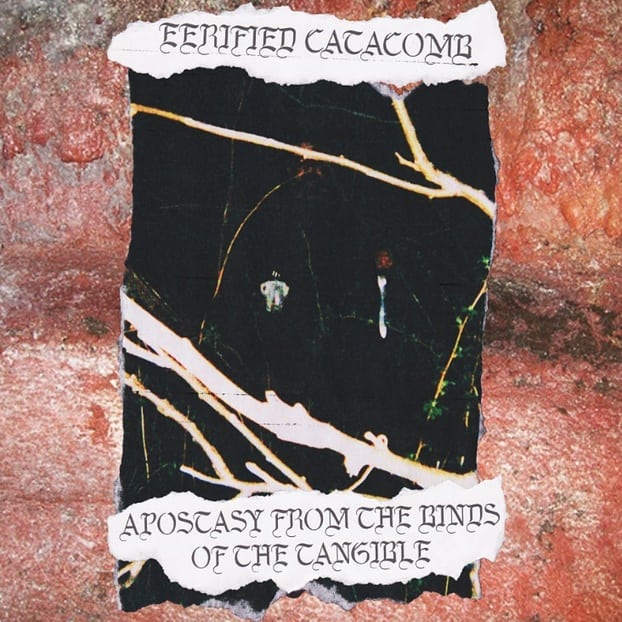 EERIFIED CATACOMB
APOSTASY FROM THE BINDS
OF THE TANGIBLE